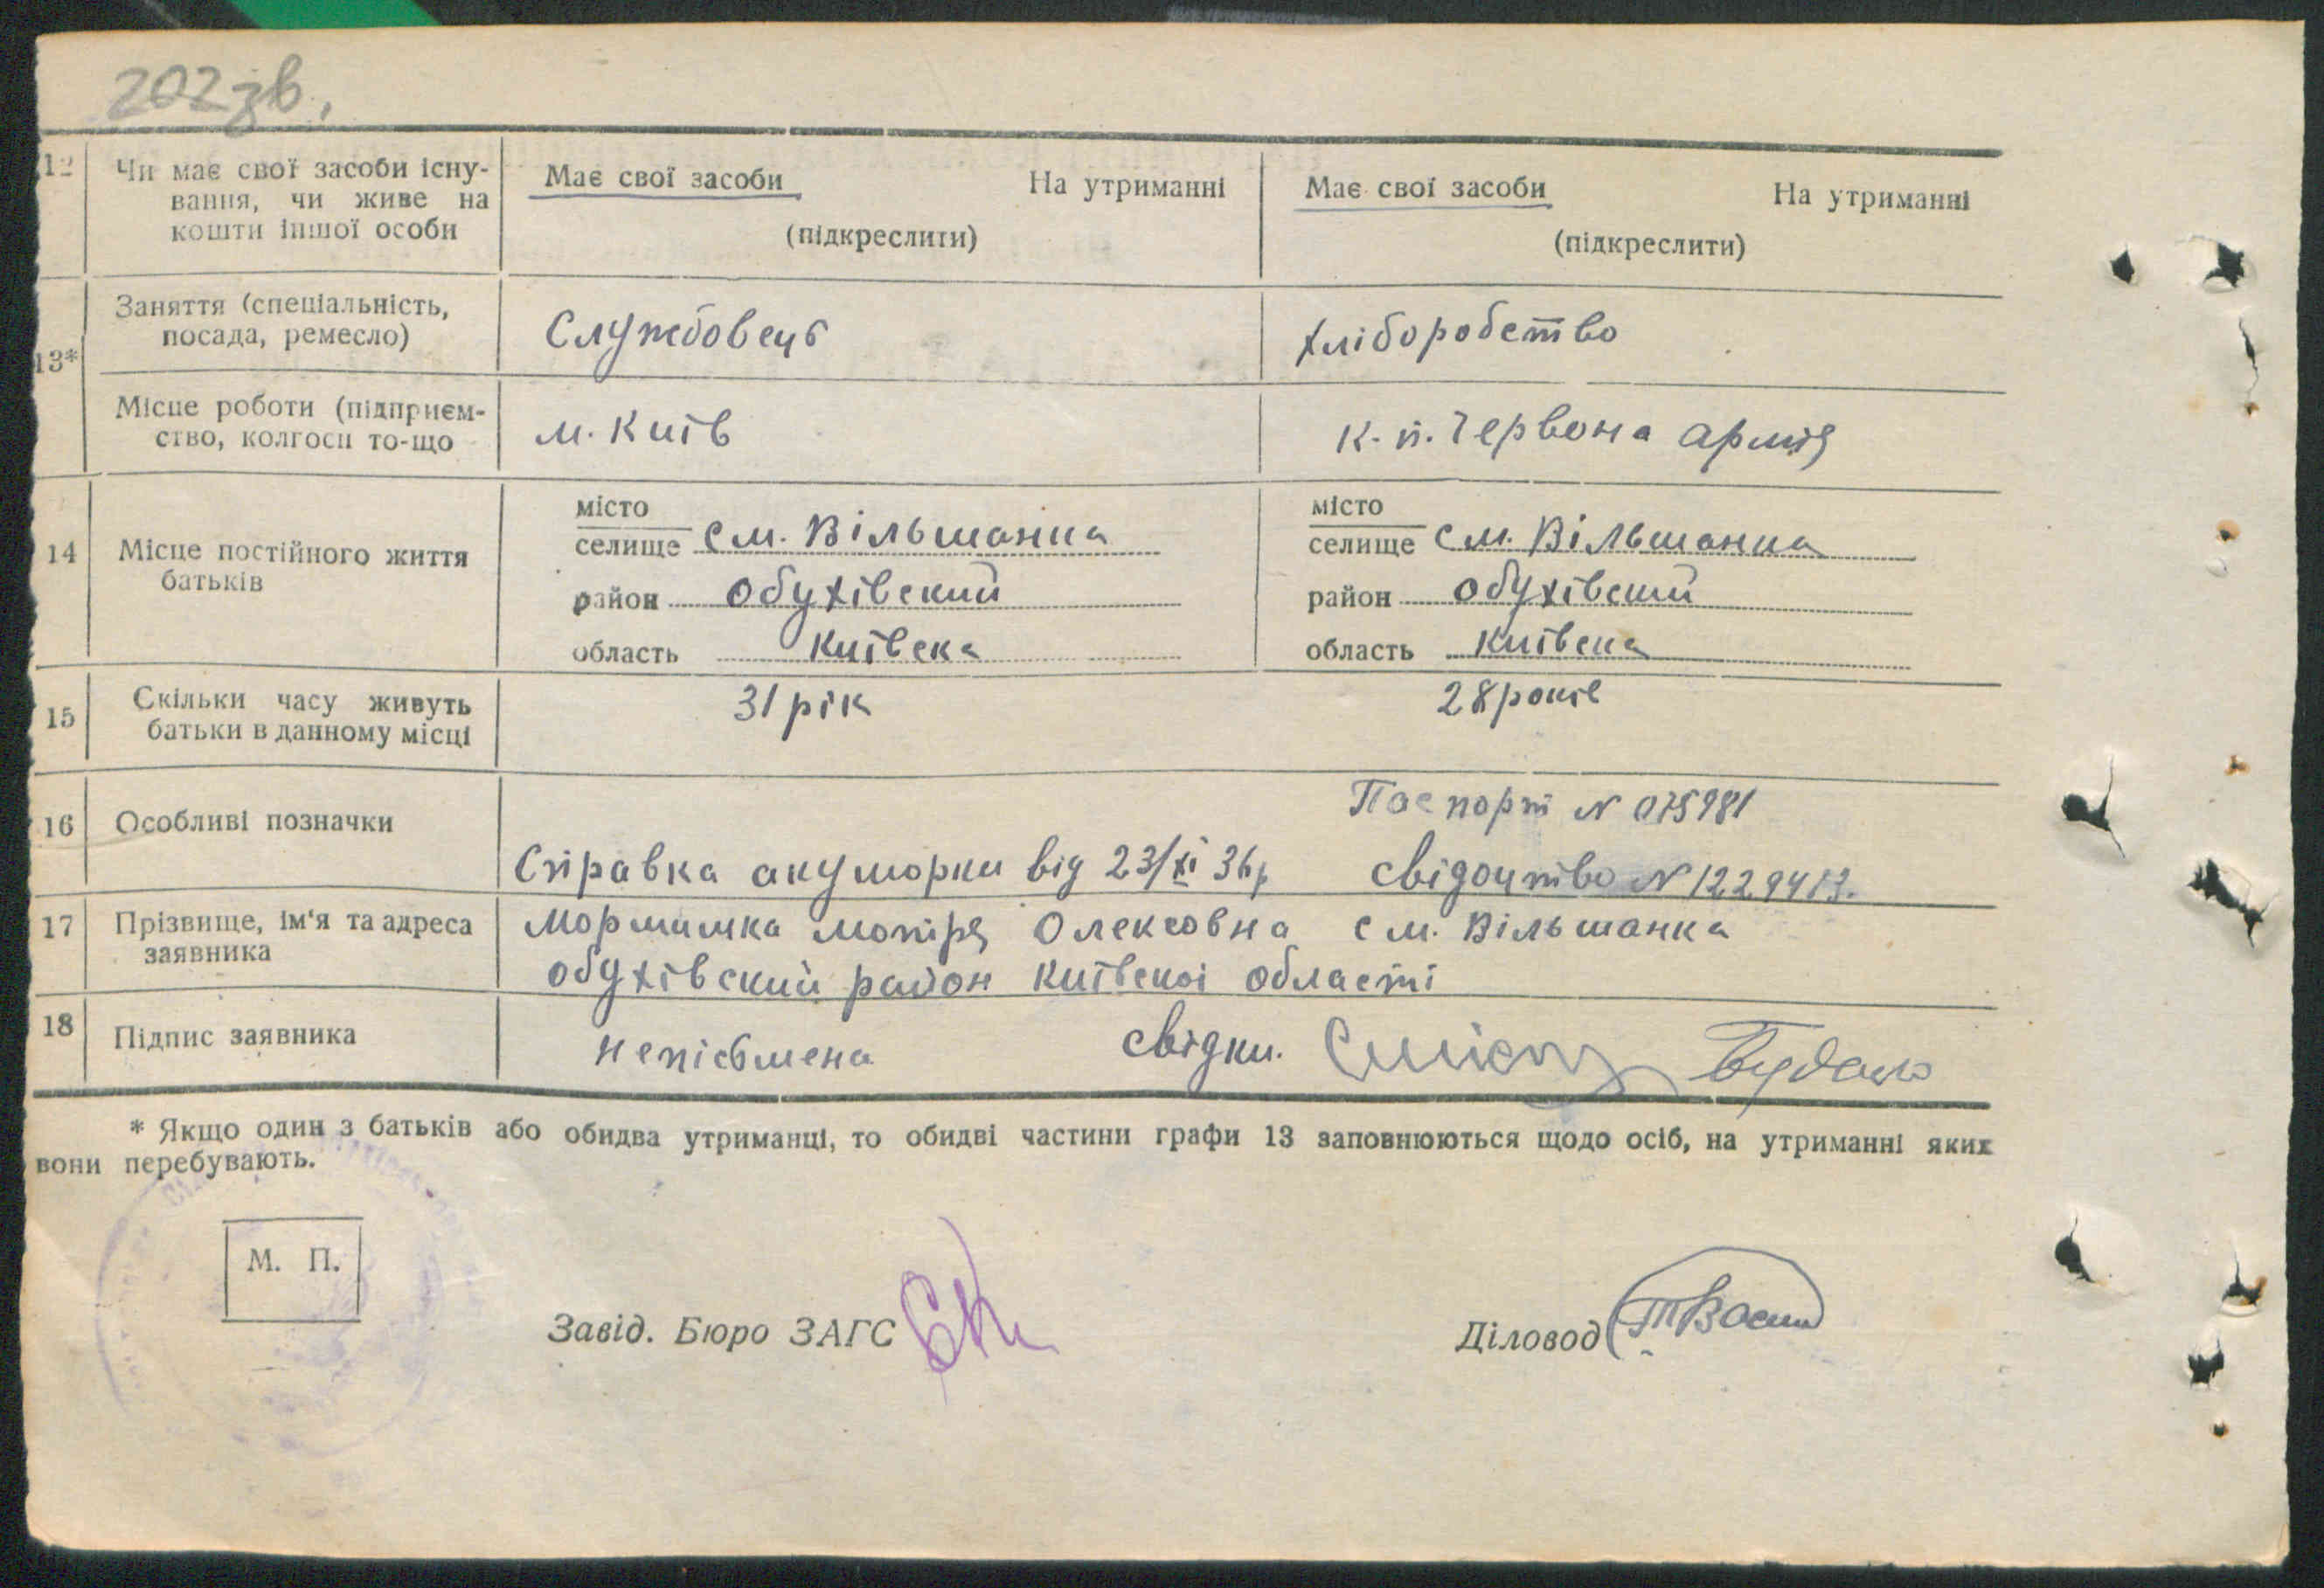 202 зв.
12 Чи має свої засоби існу- Має свої засоби На утриманні Має свої засоби На утриманні
вання, чи живе на
кошти іншої особи (підкреслити) (підкреслити)
13* Заняття (спеціальність, Службовець Хліборобство
посада, ремесло)
Місце роботи (підприєм- м. Київ к-п. Червона армія
ство, колгосп то-що
14 Місце постійного життя батьків
місто місто
селище см. Вільшанка селище см. Вільшанка
район Обухівский район Обухівский
область Київска область Київска
15 Скільки часу живуть 31 рік 28 років
батьки в данному місці
16 Особливі позначки Паспорт N 075981
Справка акушорки від 23/XI 36р свідоцтво N 1229413.
17 Прізвище, ім'я та адреса Олексовна см. Вільшанка
заявника Обухівский район Київскоі області
18 Підпис заявника непісьмена свідки.
* Якщо один з батьків або обидва утриманці, то обидві частини графи 13 заповнюються щодо осіб, на утриманні яких
вони перебувають.
М. П.
Завід. Бюро ЗАГС Діловод